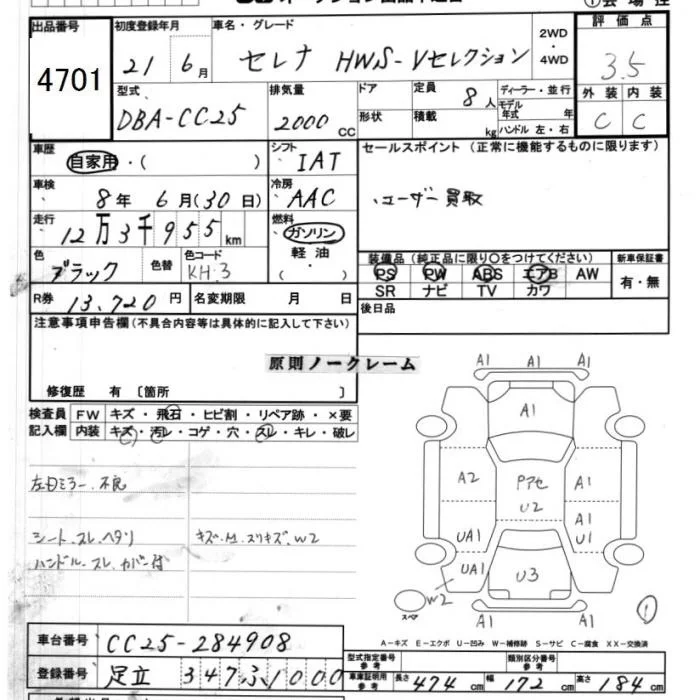 出品番号
4701
初度登録年月
21 6月
車名・グレード
セレナ HWS-Vセレクション
2WD
・
4WD
評価点
3.5
外装 内装
C C
型式
DBA-CC25
排気量
2000cc
ドア
形状
定員
8人
積載
kg
ディーラー・並行
モデル年式 年
ハンドル 左・右
車歴
自家用・( )
シフト
IAT
セールスポイント(正常に機能するものに限ります)
、ユーザー買取
車検
8年 6月(30日)
冷房
AAC
走行
12万3千955km
燃料
ガソリン
軽油
( )
色
ブラック
色替
色コード
KH3
装備品(純正品に限り○をつけてください)
PS PW ABS エアB AW
SR ナビ TV カワ
新車保証書
有・無
R券 13,720円
名変期限 月 日
後日品
注意事項申告欄(不具合内容等は具体的に記入して下さい)
原則ノークレーム
修復歴 有〔箇所 〕
検査員記入欄
FW キズ・飛石・ヒビ割・リペア跡・×要
内装 キズ・汚レ・コゲ・穴・スレ・キレ・破レ
左日ミラー不良
シート.スレ.ヘタリ
キズ.凹.スリキズ.W2
ハンドル.スレ.カバー付
A1 A1
A1
A2 Pアセ A1
U2
UA1 A1
U1
UA1 U3
W2
スペア
A1 A1
①
A-キズ E-エクボ U-凹み W-補修跡 S-サビ C-腐食 XX-交換済
車台番号
CC25-284908
登録番号
足立 347ふ1000
型式指定番号
参考
類別区分番号
参考
車庫証明用
参考
長さ 474cm 幅 172cm 高さ 184cm